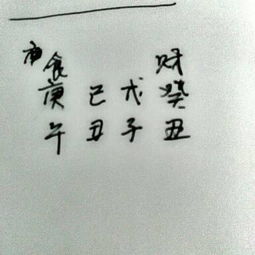 食 财
庚 己 戊 癸
午 丑 子 丑